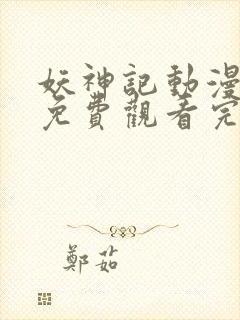 妖神記動漫
免費觀看完
鄭茹